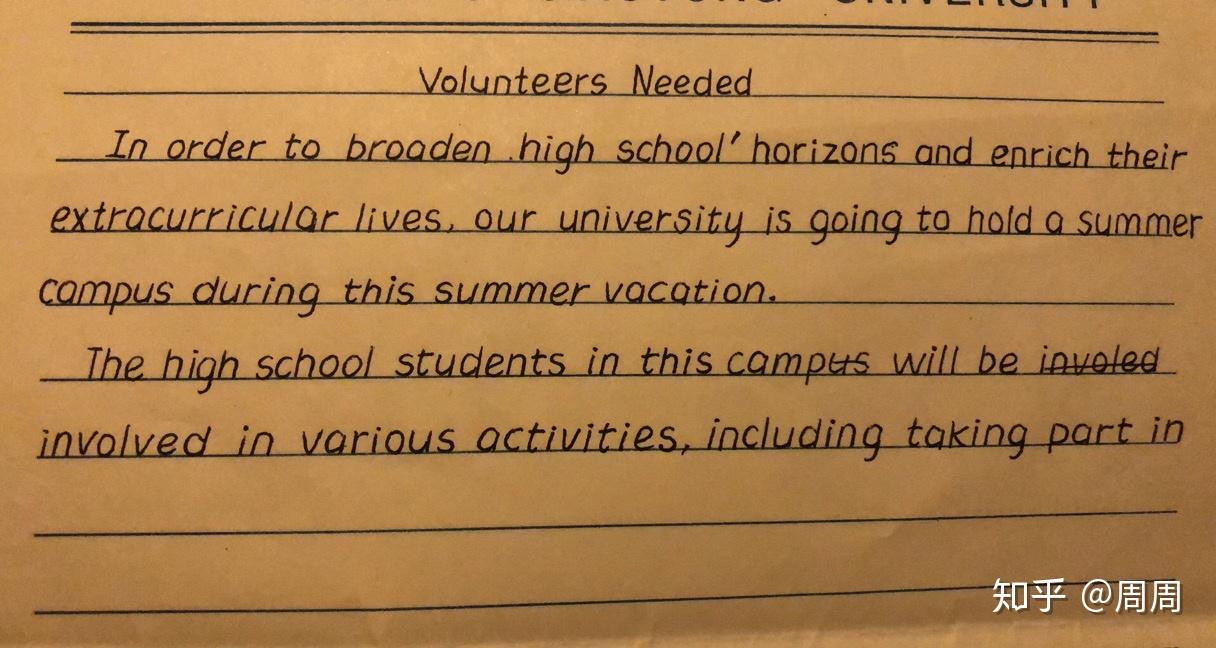 UNIVERSITY
Volunteers Needed
In order to broaden high school' horizons and enrich their
extracurricular lives, our university is going to hold a summer
campus during this summer vacation.
The high school students in this campus will be involed
involved in various activities, including taking part in
知乎 @周周